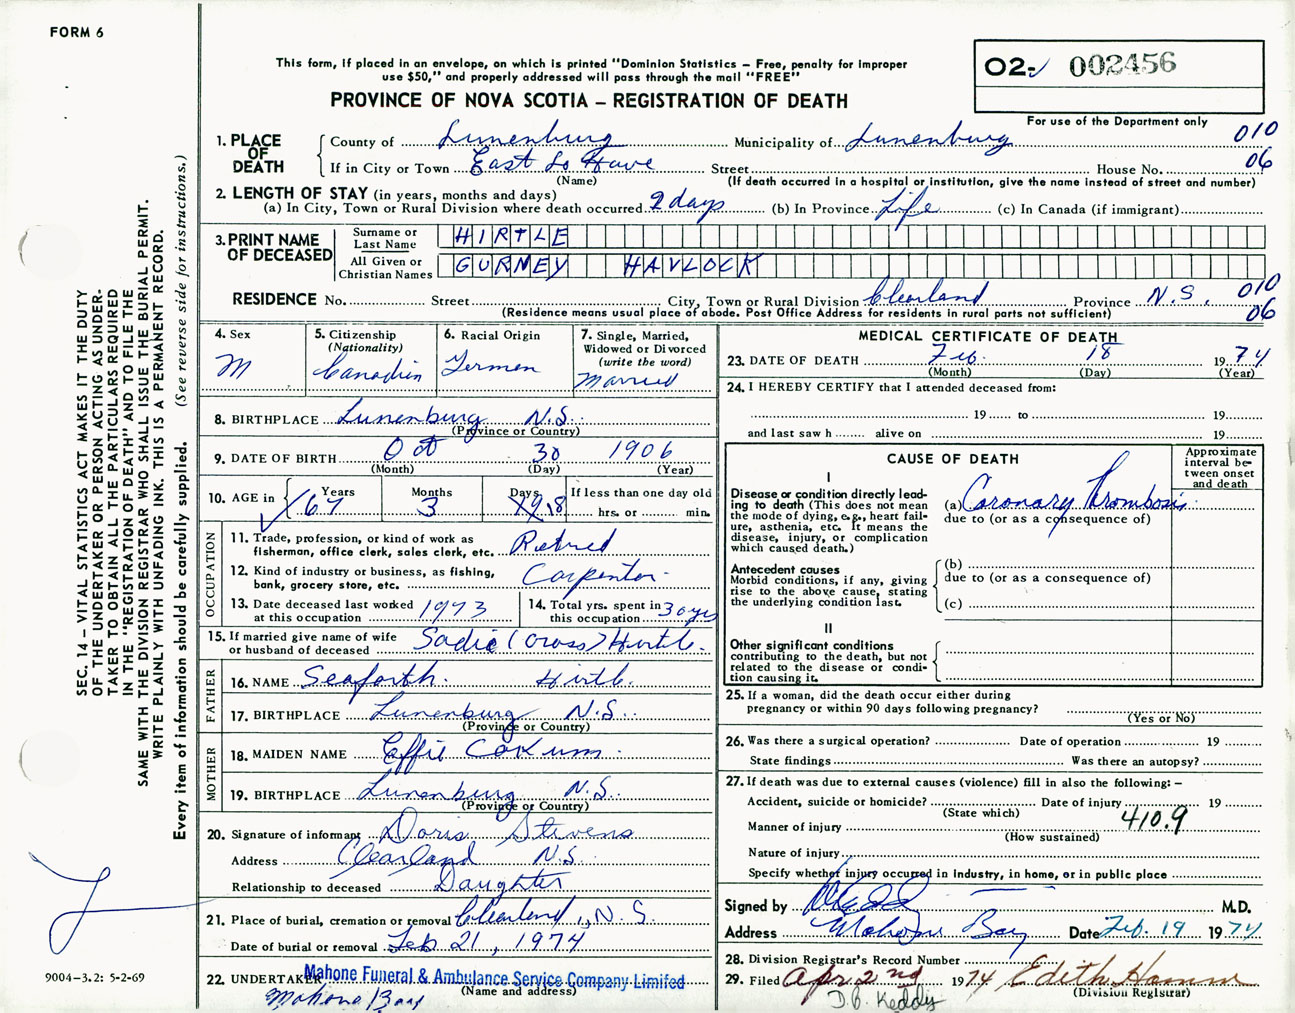 FORM 6
This form, if placed in an envelope, on which is printed "Dominion Statistics – Free, penalty for improper
use $50," and properly addressed will pass through the mail "FREE"
PROVINCE OF NOVA SCOTIA – REGISTRATION OF DEATH
02-✓ 002456
For use of the Department only
010
06
1. PLACE OF DEATH
County of Lunenburg Municipality of Lunenburg
If in City or Town East La Have Street House No.
(Name) (If death occurred in a hospital or institution, give the name instead of street and number)
2. LENGTH OF STAY (in years, months and days)
(a) In City, Town or Rural Division where death occurred 2 days (b) In Province Life (c) In Canada (if immigrant)
3. PRINT NAME OF DECEASED
Surname or Last Name HIRTLE
All Given or Christian Names GURNEY HAVLOCK
RESIDENCE No. Street City, Town or Rural Division Clearland Province N.S. 010
(Residence means usual place of abode. Post Office Address for residents in rural parts not sufficient) 06
4. Sex
M
5. Citizenship
(Nationality)
Canadien
6. Racial Origin
German
7. Single, Married,
Widowed or Divorced
(write the word)
Married
8. BIRTHPLACE Lunenburg N.S.
(Province or Country)
9. DATE OF BIRTH Oct 30 1906
(Month) (Day) (Year)
10. AGE in Years 67 Months 3 Days 18 If less than one day old
hrs. or min.
OCCUPATION
11. Trade, profession, or kind of work as
fisherman, office clerk, sales clerk, etc. Retired
12. Kind of industry or business, as fishing,
bank, grocery store, etc. Carpentor
13. Date deceased last worked
at this occupation 1973
14. Total yrs. spent in
this occupation 30 yrs
15. If married give name of wife
or husband of deceased Sadie (Cross) Hirtle
FATHER
16. NAME Seaforth Hirtle
17. BIRTHPLACE Lunenburg N.S.
(Province or Country)
MOTHER
18. MAIDEN NAME Effie Cokum
19. BIRTHPLACE Lunenburg N.S.
(Province or Country)
20. Signature of informant Doris Stevens
Address Clearland N.S.
Relationship to deceased Daughter
21. Place of burial, cremation or removal Clearland, N.S.
Date of burial or removal Feb 21, 1974
22. UNDERTAKER Mahone Funeral & Ambulance Service Company Limited
(Name and address)
Mahone Bay
MEDICAL CERTIFICATE OF DEATH
23. DATE OF DEATH Feb. 18 1974
(Month) (Day) (Year)
24. I HEREBY CERTIFY that I attended deceased from:
19 to 19
and last saw h alive on 19
CAUSE OF DEATH
Approximate
interval be-
tween onset
and death
I
Disease or condition directly lead-
ing to death (This does not mean
the mode of dying, e.g., heart fail-
ure, asthenia, etc. It means the
disease, injury, or complication
which caused death.)
(a) Coronary Thrombosis
due to (or as a consequence of)
Antecedent causes
Morbid conditions, if any, giving
rise to the above cause, stating
the underlying condition last.
(b)
due to (or as a consequence of)
(c)
II
Other significant conditions
contributing to the death, but not
related to the disease or condi-
tion causing it.
25. If a woman, did the death occur either during
pregnancy or within 90 days following pregnancy?
(Yes or No)
26. Was there a surgical operation? Date of operation 19
State findings Was there an autopsy?
27. If death was due to external causes (violence) fill in also the following: –
Accident, suicide or homicide? Date of injury 19
(State which)
410.9
Manner of injury
(How sustained)
Nature of injury
Specify whether injury occurred in industry, in home, or in public place
Signed by M.D.
Address Mahone Bay Date Feb. 19 1974
28. Division Registrar's Record Number
29. Filed Apr 2nd 1974 Edith Hamm
(Division Registrar)
D.B. Keddy
SEC. 14 – VITAL STATISTICS ACT MAKES IT THE DUTY
OF THE UNDERTAKER OR PERSON ACTING AS UNDER-
TAKER TO OBTAIN ALL THE PARTICULARS REQUIRED
IN THE "REGISTRATION OF DEATH" AND TO FILE THE
SAME WITH THE DIVISION REGISTRAR WHO SHALL ISSUE THE BURIAL PERMIT.
WRITE PLAINLY WITH UNFADING INK. THIS IS A PERMANENT RECORD.
Every item of information should be carefully supplied. (See reverse side for instructions.)
9004-3.2: 5-2-69